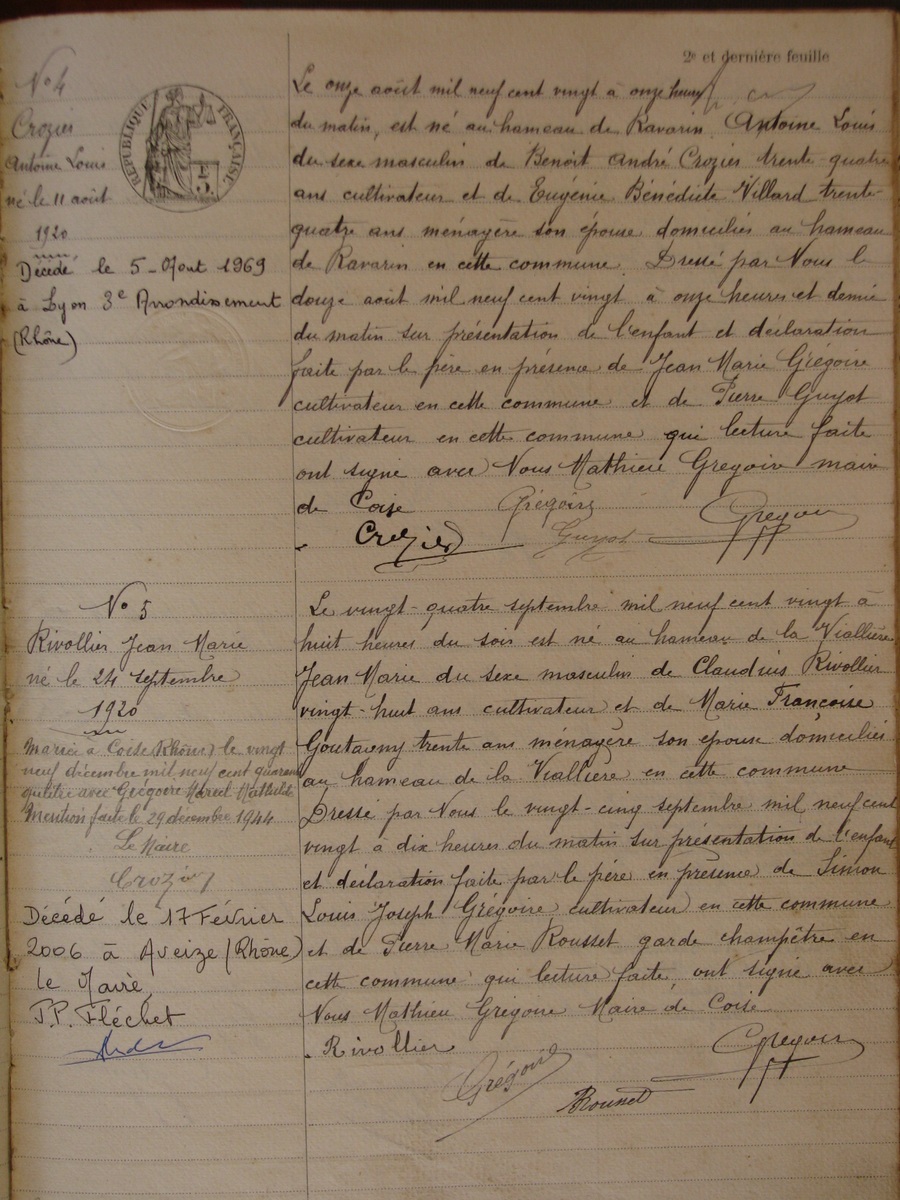 2e et dernière feuille
No 4
Crozier
Antoine Louis
né le 11 août
1920
RÉPUBLIQUE FRANÇAISE
Décédé le 5-Aout 1969
à Lyon 3e Arrondissement
(Rhône)
Le onze août mil neuf cent vingt à onze heures
du matin, est né au hameau de Ravarin Antoine Louis
du sexe masculin de Benoit André Crozier trente-quatre
ans cultivateur et de Eugénie Bénédicte Villard trente-
quatre ans ménagère son épouse domiciliés au hameau
de Ravarin en cette commune. Dressé par Nous le
douze août mil neuf cent vingt à onze heures et demie
du matin sur présentation de l'enfant et déclaration
faite par le père en présence de Jean Marie Grégoire
cultivateur en cette commune et de Pierre Guyot
cultivateur en cette commune qui lecture faite
ont signé avec Nous Mathieu Gregoire maire
de Coise Grégoire Gregoire
Crozier Guyot
No 5
Rivollier Jean Marie
né le 24 septembre
1920
Marié à Coise (Rhône) le vingt
neuf décembre mil neuf cent quarante
quatre avec Grégoire Marcel Mathilde
Mention faite le 29 décembre 1944
Le Maire
Crozier
Décédé le 17 Février
2006 à Aveize (Rhône)
le Maire,
J.P. Fléchet
Le vingt-quatre septembre mil neuf cent vingt à
huit heures du soir est né au hameau de la Viallière
Jean Marie du sexe masculin de Claudius Rivollier
vingt-huit ans cultivateur et de Marie Françoise
Goutagny trente ans ménagère son épouse domiciliés
au hameau de la Viallière en cette commune
Dressé par Nous le vingt-cinq septembre mil neuf cent
vingt à dix heures du matin sur présentation de l'enfant
et déclaration faite par le père en présence de Simon
Louis Joseph Grégoire cultivateur en cette commune
et de Pierre Marie Rousset garde champêtre en
cette commune qui lecture faite, ont signé avec
Nous Mathieu Grégoire Maire de Coise
Rivollier Gregoire
Grégoire Rousset